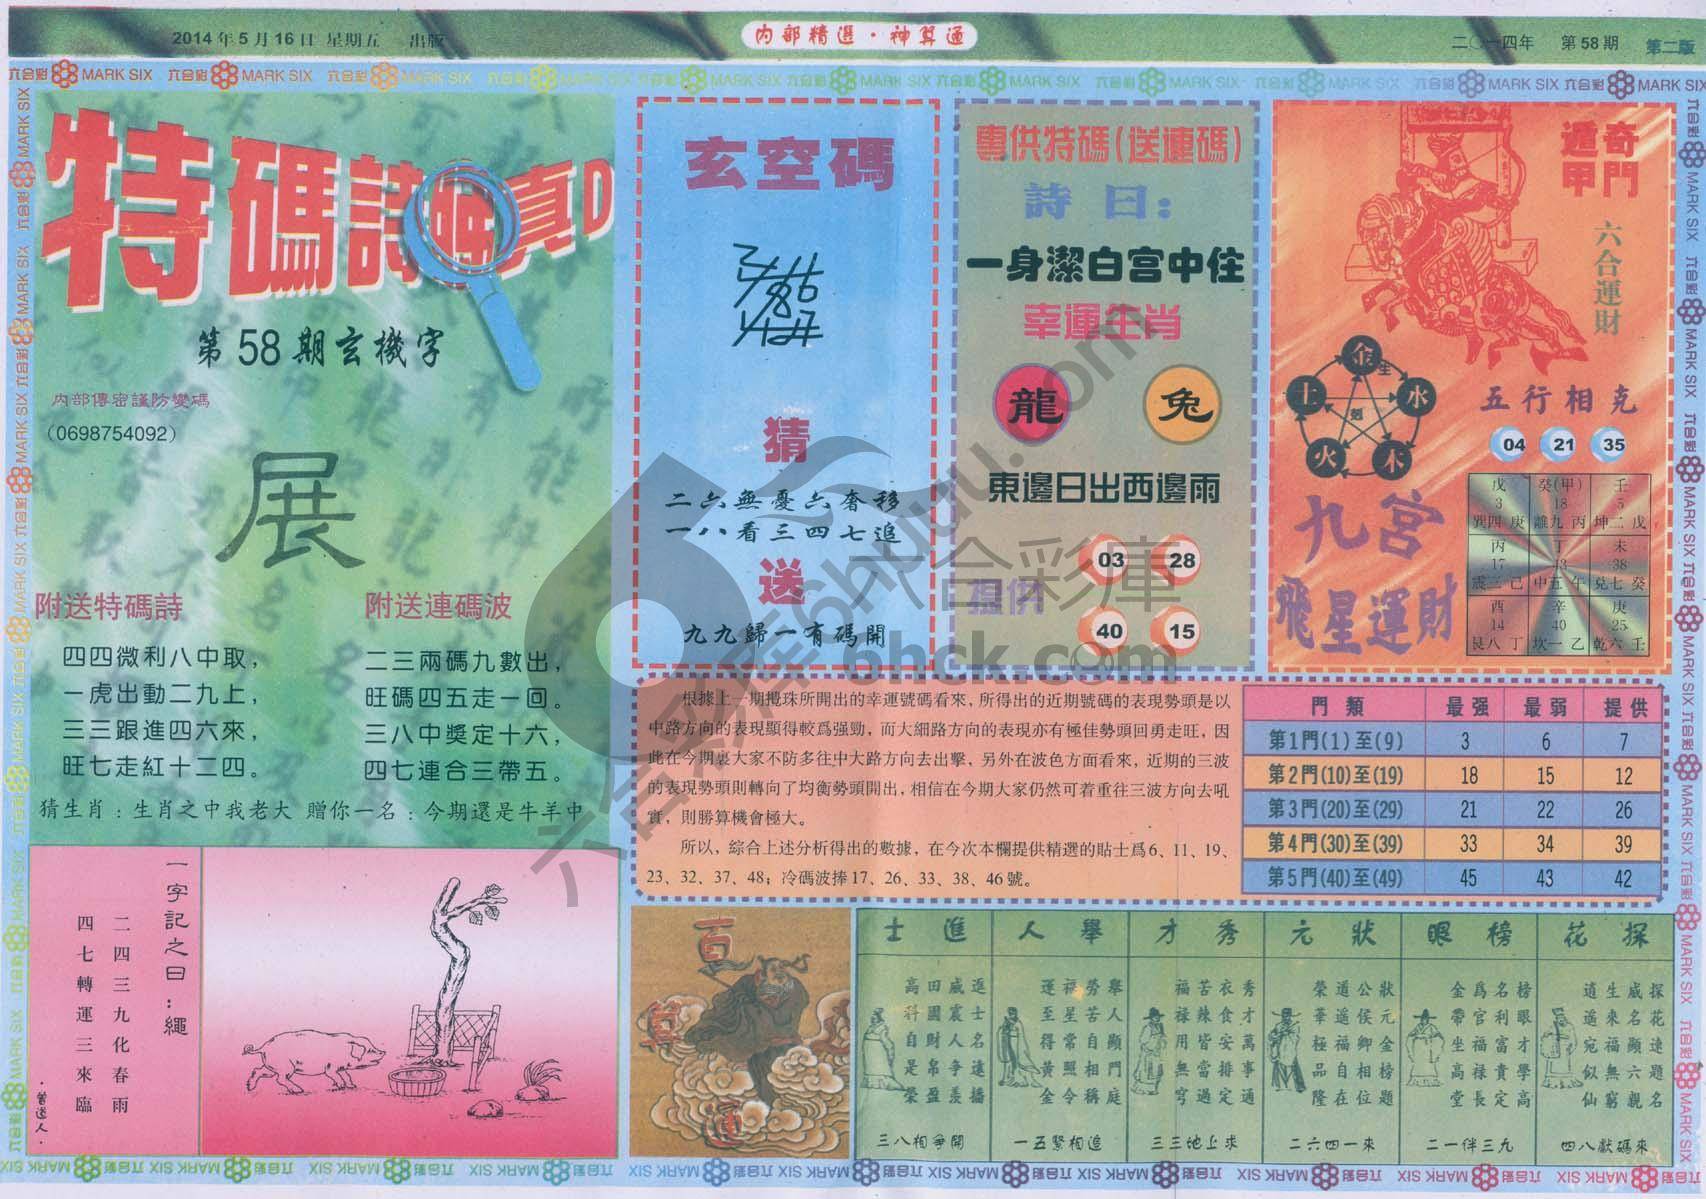 2014年5月16日 星期五 出版
内部精選·神算通
二〇一四年 第58期 第二版
六合彩 MARK SIX
特碼詩 真D
第58期玄機字
内部傳密謹防變碼
(0698754092)
展
附送特碼詩
四四微利八中取，
一虎出動二九上，
三三跟進四六來，
旺七走紅十二四。
附送連碼波
二三兩碼九數出，
旺碼四五走一回。
三八中獎定十六，
四七連合三帶五。
猜生肖：生肖之中我老大 贈你一名：今期還是牛羊中
一字記之曰：繩
二四三九化春雨
四七轉運三來臨
·曾道人·
玄空碼
猜
二六無憂六奢移
一八看三四七追
送
九九歸一有碼開
專供特碼(送連碼)
詩曰：
一身潔白宫中住
幸運生肖
龍 兔
東邊日出西邊雨
提供
03 28
40 15
遁奇
甲門
六合運財
金 水 木 火 土
生 剋
五行相克
04 21 35
九宫
飛星運財
戊 癸(甲) 壬
3 18 5
巽四 庚 離九 丙 坤二 戊
丙 丁 未
17 43 38
震三 己 中五 午 兑七 癸
酉 辛 庚
14 40 25
艮八 丁 坎一 乙 乾六 壬
根據上一期攪珠所開出的幸運號碼看來，所得出的近期號碼的表現勢頭是以
中路方向的表現顯得較爲强勁，而大細路方向的表現亦有極佳勢頭回勇走旺，因
此在今期裏大家不防多往中大路方向去出擊，另外在波色方面看來，近期的三波
的表現勢頭則轉向了均衡勢頭開出，相信在今期大家仍然可着重往三波方向去吼
實，則勝算機會極大。
所以，綜合上述分析得出的數據，在今次本欄提供精選的貼士爲6、11、19、
23、32、37、48；冷碼波捧17、26、33、38、46號。
門類 最强 最弱 提供
第1門(1)至(9) 3 6 7
第2門(10)至(19) 18 15 12
第3門(20)至(29) 21 22 26
第4門(30)至(39) 33 34 39
第5門(40)至(49) 45 43 42
百
算
運
士進
進士名遠播
威震人争羨
田國財帛盈
高科自是榮
三八相争開
人舉
舉人顯門庭
勞苦自相稱
福星常照令
運至得黄金
一五緊相追
才秀
秀才萬事通
衣食安排定
苦辣皆當過
福禄用無穹
三三地上求
元狀
狀元金榜題
公侯卿相位
道遥福自在
榮華極品隆
二六四一來
眼榜
榜眼才學高
名利富貴定
爲官福禄長
金帶坐高堂
二一伴三九
花探
探花達題名
威名顯六親
生來福無窮
道遥宛似仙
四八獻碼來
六合彩庫
6hck.com
六合彩库6hcptu.com